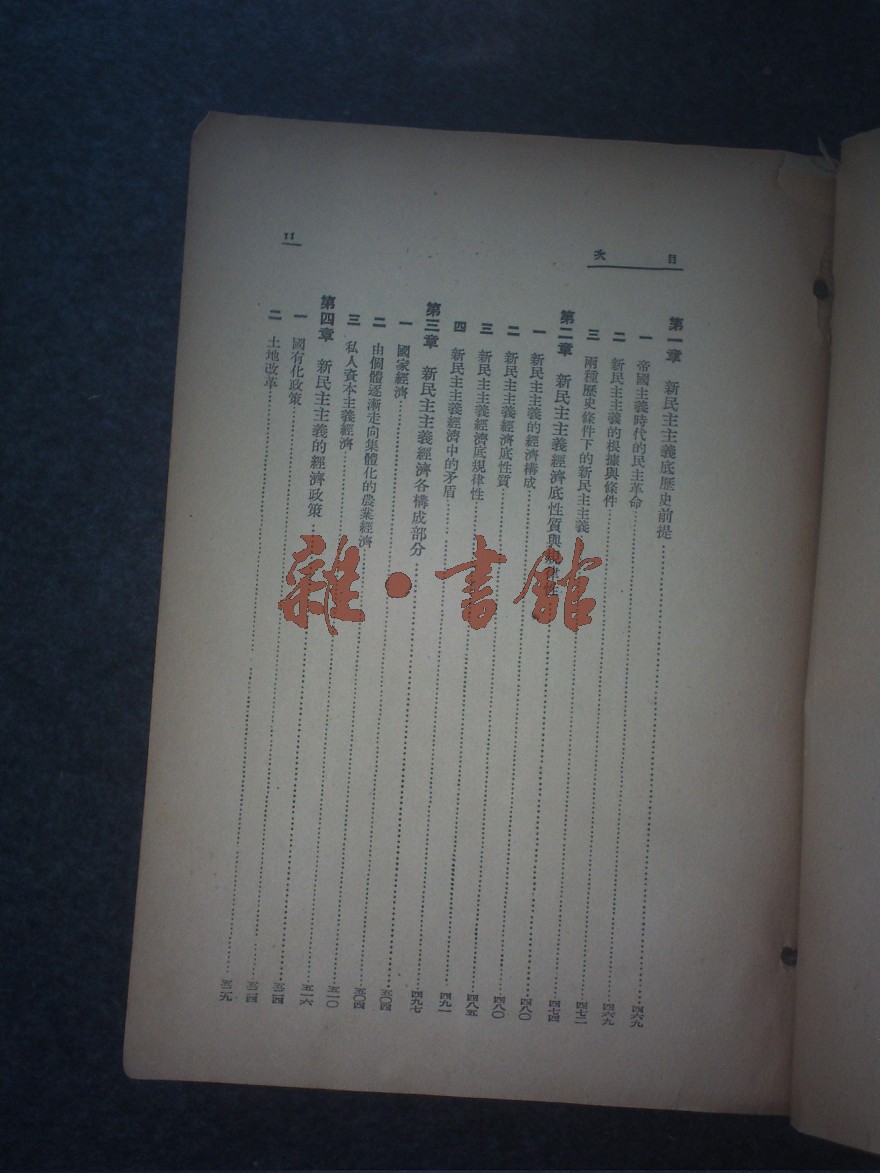 目次
11
第一章 新民主主義底歷史前提……四六九
一 帝國主義時代的民主革命……四六九
二 新民主主義的根據與條件……四七二
三 兩種歷史條件下的新民主主義……四七四
第二章 新民主主義經濟底性質與……四八〇
一 新民主主義的經濟構成……四八〇
二 新民主主義經濟底性質……四八五
三 新民主主義經濟底規律性……四九一
四 新民主主義經濟中的矛盾……四九七
第三章 新民主主義經濟各構成部分……五〇四
一 國家經濟……五〇四
二 由個體逐漸走向集體化的農業經濟……五一〇
三 私人資本主義經濟……五一六
第四章 新民主主義的經濟政策……五二四
一 國有化政策……五二四
二 土地改革……五二九
雜·書館